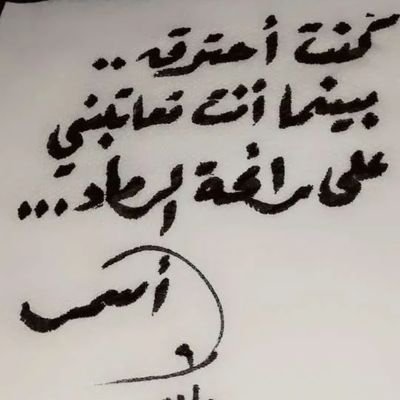 كنت أحترق..
بينما أنت تعاتبني
على رائحة الرماد...
أسمر